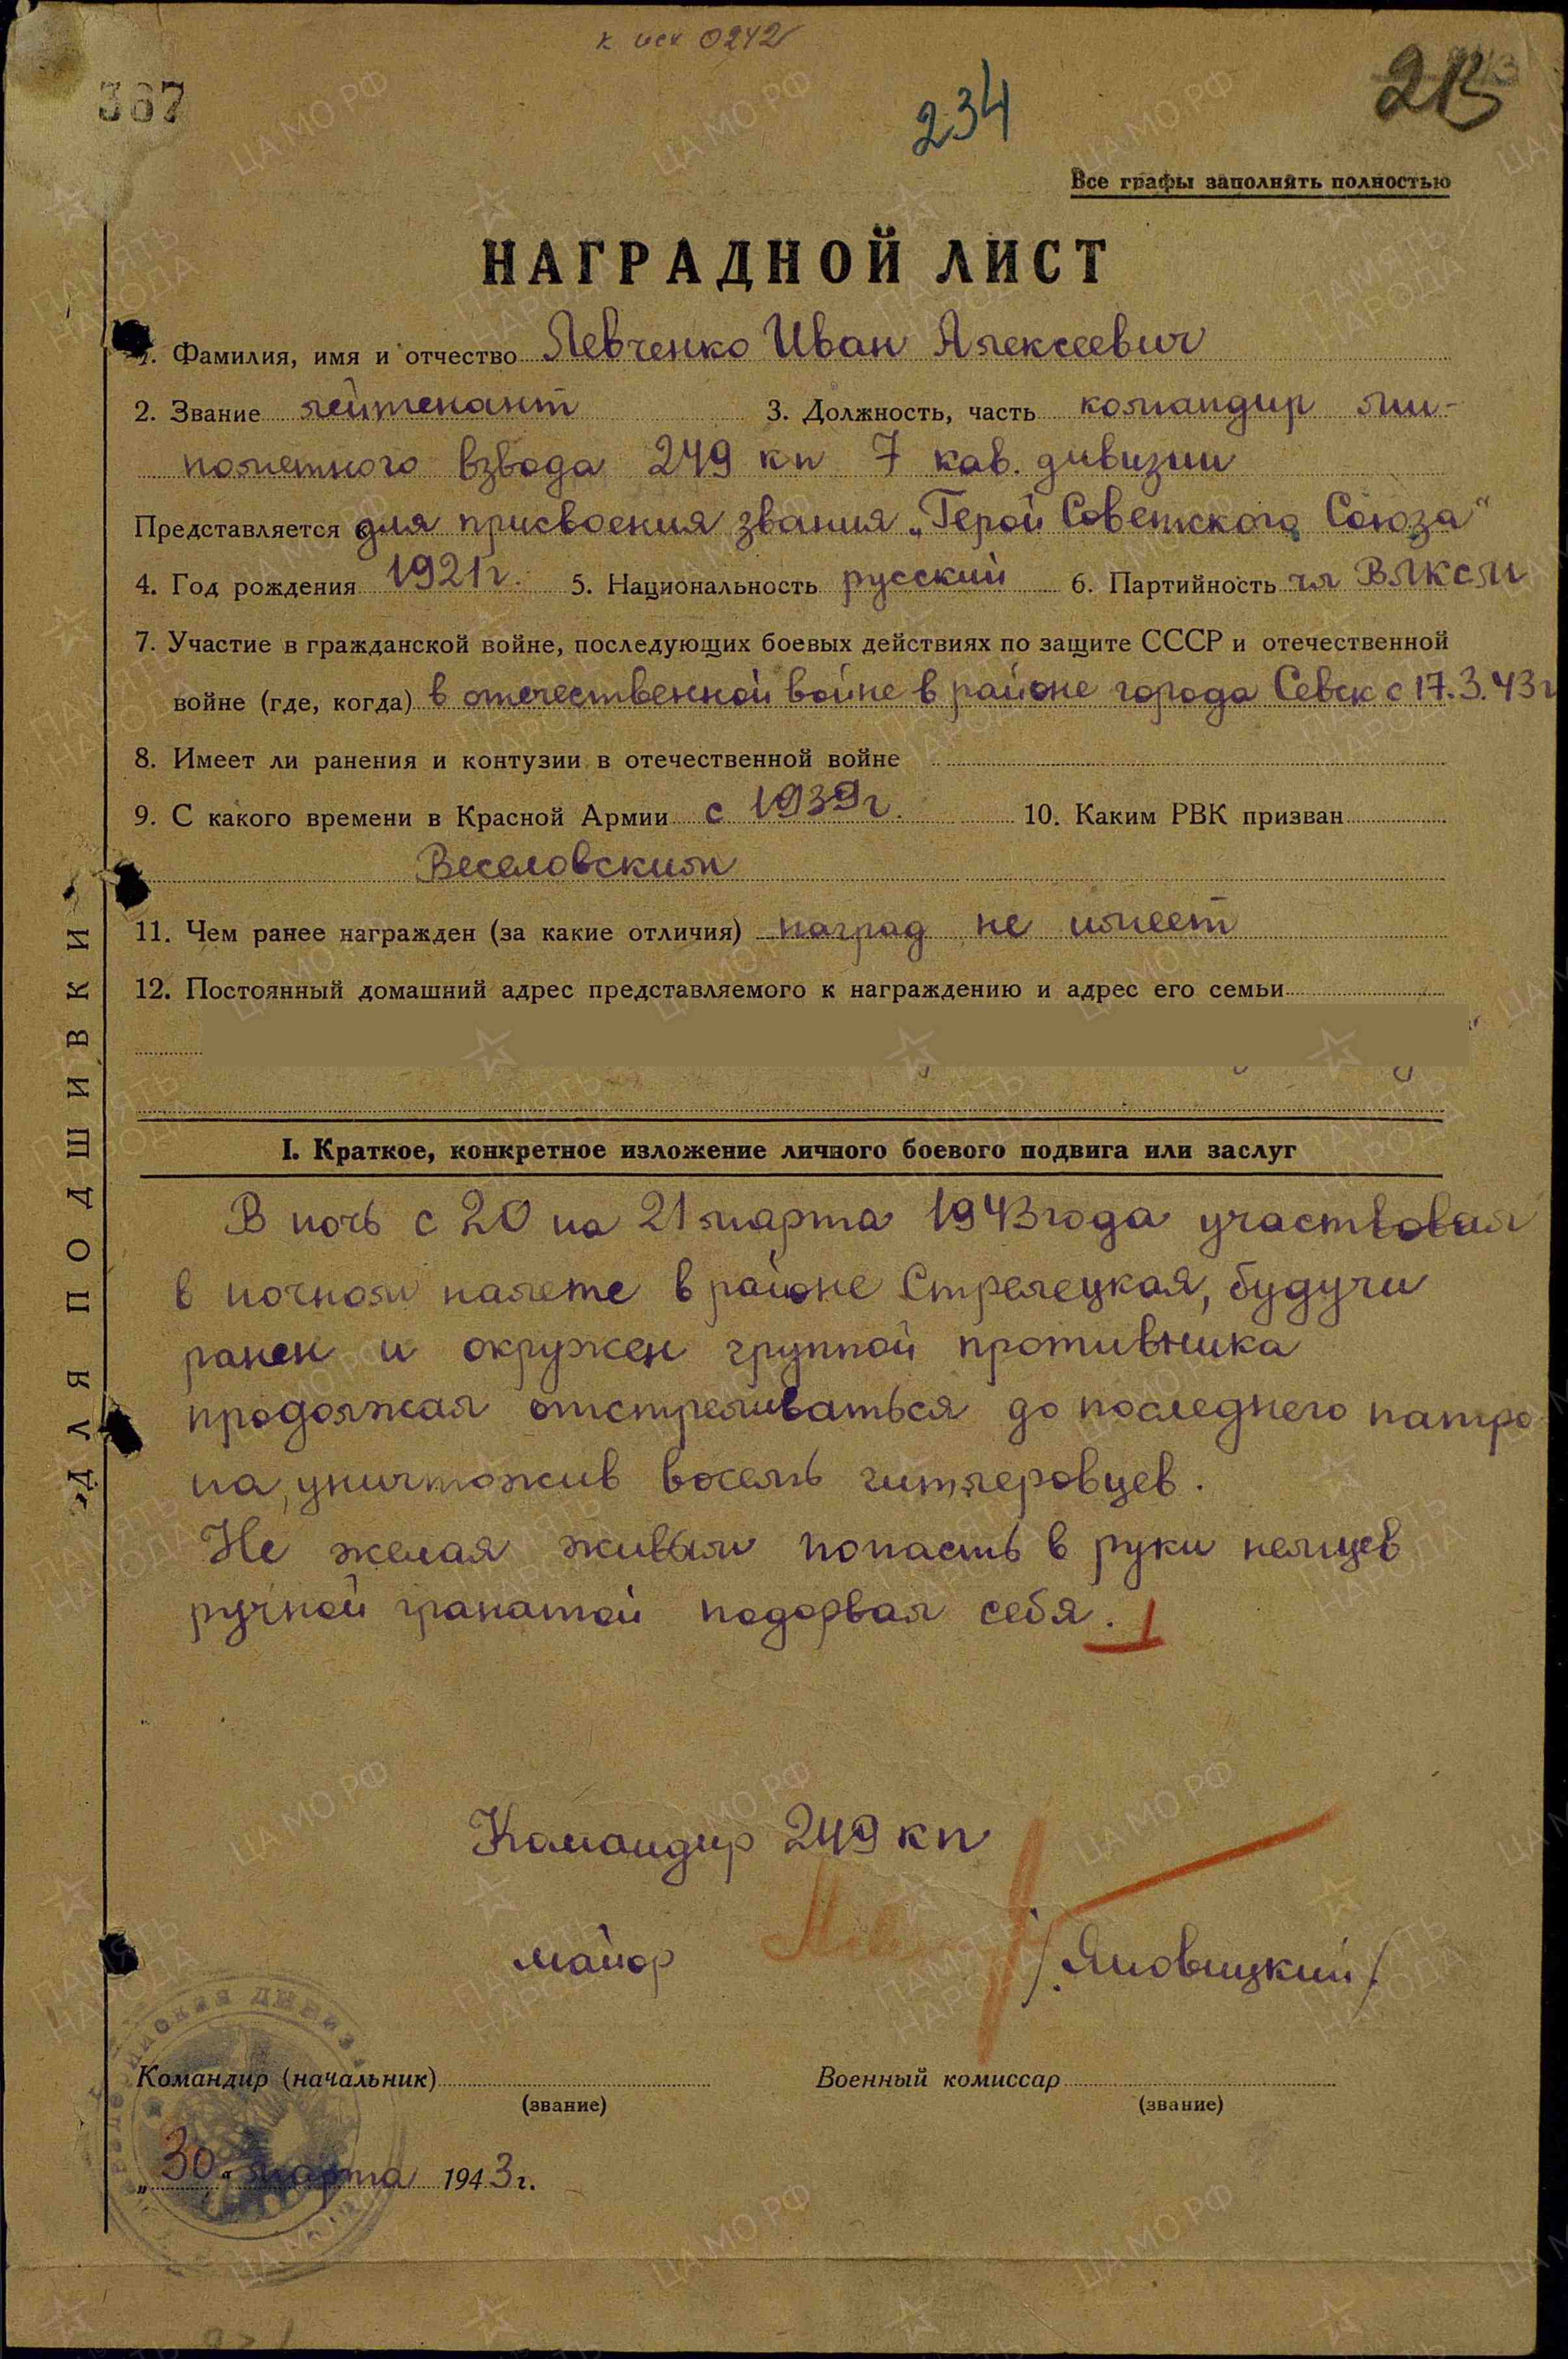 к исх 0242
367
234
213
Все графы заполнять полностью
НАГРАДНОЙ ЛИСТ
1. Фамилия, имя и отчество Левченко Иван Алексеевич
2. Звание лейтенант 3. Должность, часть командир ми-
нометного взвода 249 кп 7 кав. дивизии
Представляется для присвоения звания „Герой Советского Союза"
4. Год рождения 1921г. 5. Национальность русский 6. Партийность чл ВЛКСМ
7. Участие в гражданской войне, последующих боевых действиях по защите СССР и отечественной
войне (где, когда) в отечественной войне в районе города Севск с 17.3.43г
8. Имеет ли ранения и контузии в отечественной войне
9. С какого времени в Красной Армии с 1939г. 10. Каким РВК призван
Веселовским
11. Чем ранее награжден (за какие отличия) наград не имеет
12. Постоянный домашний адрес представляемого к награждению и адрес его семьи
I. Краткое, конкретное изложение личного боевого подвига или заслуг
В ночь с 20 на 21 марта 1943 года участвовал
в ночном налете в районе Стрелецкая, будучи
ранен и окружен группой противника
продолжал отстреливаться до последнего патро
на, уничтожив восемь гитлеровцев.
Не желая живым попасть в руки немцев
ручной гранатой подорвал себя.
Командир 249 кп
майор /Яновицкий/
Командир (начальник) Военный комиссар
(звание) (звание)
„30" марта 1943г.
ДЛЯ ПОДШИВКИ
ЦА МО РФ
ПАМЯТЬ НАРОДА